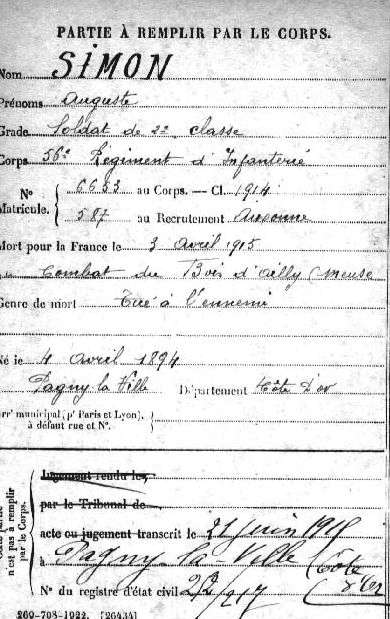 PARTIE À REMPLIR PAR LE CORPS.
Nom SIMON
Prénoms Auguste
Grade Soldat de 2e classe
Corps 56e Régiment d'Infanterie
N° Matricule. { 6633 au Corps. — Cl. 1914
587 au Recrutement Auxonne
Mort pour la France le 3 avril 1915
Combat du Bois d'Ailly (Meuse
Genre de mort Tué à l'ennemi
Né le 4 avril 1894
Pagny la Ville Département Côte d'or
Arrt municipal (pr Paris et Lyon),
à défaut rue et N°.
n'est pas à remplir
par le Corps.
Jugement rendu le
par le Tribunal de
acte ou jugement transcrit le 21 juin 1915
à Pagny-la-Ville (Côte
d'Or
N° du registre d'état civil
269-708-1922. [26434]